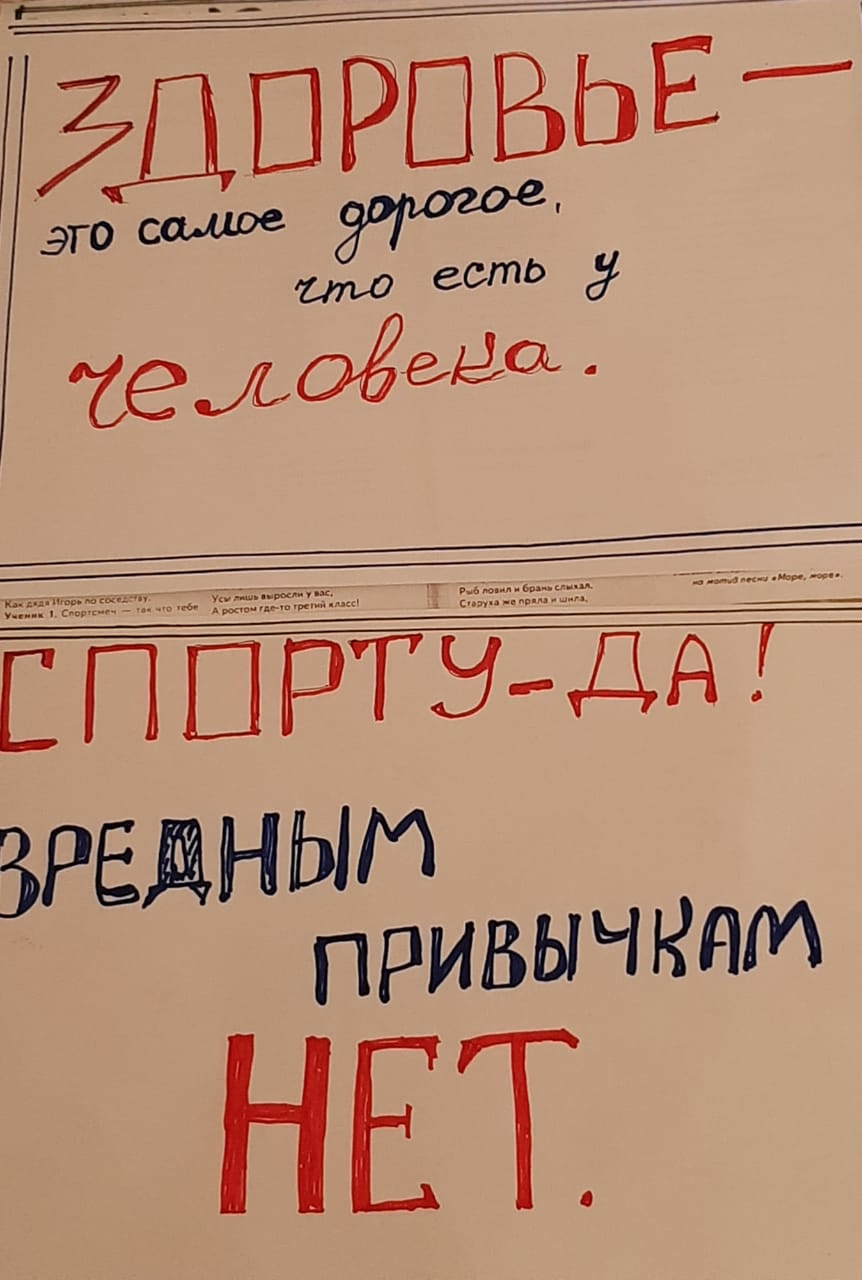 ЗДОРОВЬЕ —
это самое дорогое,
что есть у
человека.
Как дядя Игорь по соседству.
Ученик 1. Спортсмен — так что тебе
Усы лишь выросли у вас,
А ростом где-то третий класс!
Рыб ловил и брань слыхал,
Старуха же пряла и шила,
на мотив песни «Море, море».
СПОРТУ-ДА!
ВРЕДНЫМ
ПРИВЫЧКАМ
НЕТ.